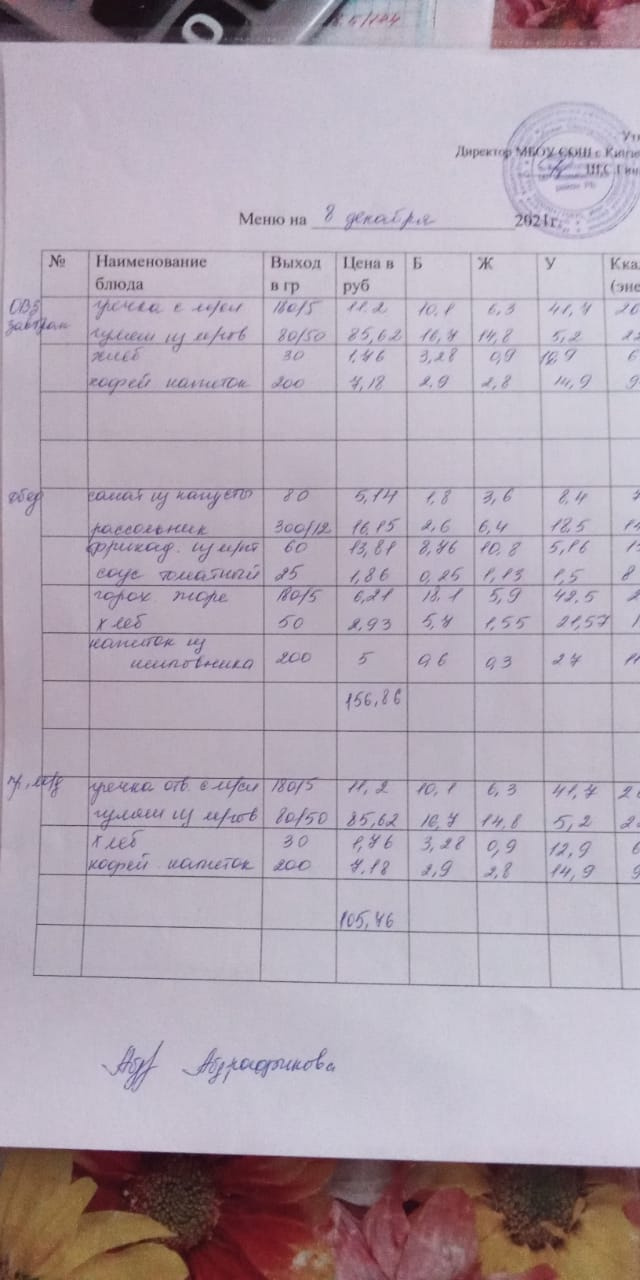 8.5/124
Директор МБОУ СОШ с
Меню на 8 декабря 2021г.
№ Наименование блюда Выход в гр Цена в руб Б Ж У Ккал (эне
ОВЗ завтрак гречка с м/сл 180/5 11,2 10,1 6,3 41,7
гуляш из м/гов 80/50 85,62 16,7 14,8 5,2
хлеб 30 1,46 3,28 0,9 12,9 6
кофей напиток 200 7,18 2,9 2,8 14,9 9
обед салат из капусты 80 5,14 1,8 3,6 8,4
рассольник 300/12 16,15 2,6 6,4 18,5
фрикад. из м/пт 60 13,81 8,46 10,8 5,16
соус томатный 25 1,86 0,25 1,13 1,5 8
горох пюре 180/5 6,21 18,1 5,9 42,5
хлеб 50 2,93 5,4 1,55 21,57
напиток из
шиповника 200 5 0,6 0,3 27
156,86
гречка отв. с м/сл 180/5 11,2 10,1 6,3 41,7
гуляш из м/гов 80/50 85,62 16,7 14,8 5,2
хлеб 30 1,46 3,28 0,9 12,9 6
кофей напиток 200 7,18 2,9 2,8 14,9 9
105,46